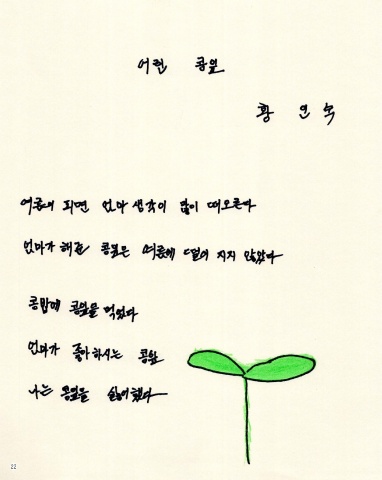 어린 콩잎
황 인 숙
여름이 되면 엄마 생각이 많이 떠오른다
엄마가 해준 콩잎은 여름에 떨어 지지 않았다
콩밥에 콩잎을 먹었다
엄마가 좋아하시는 콩잎
나는 콩잎을 싫어했다
22